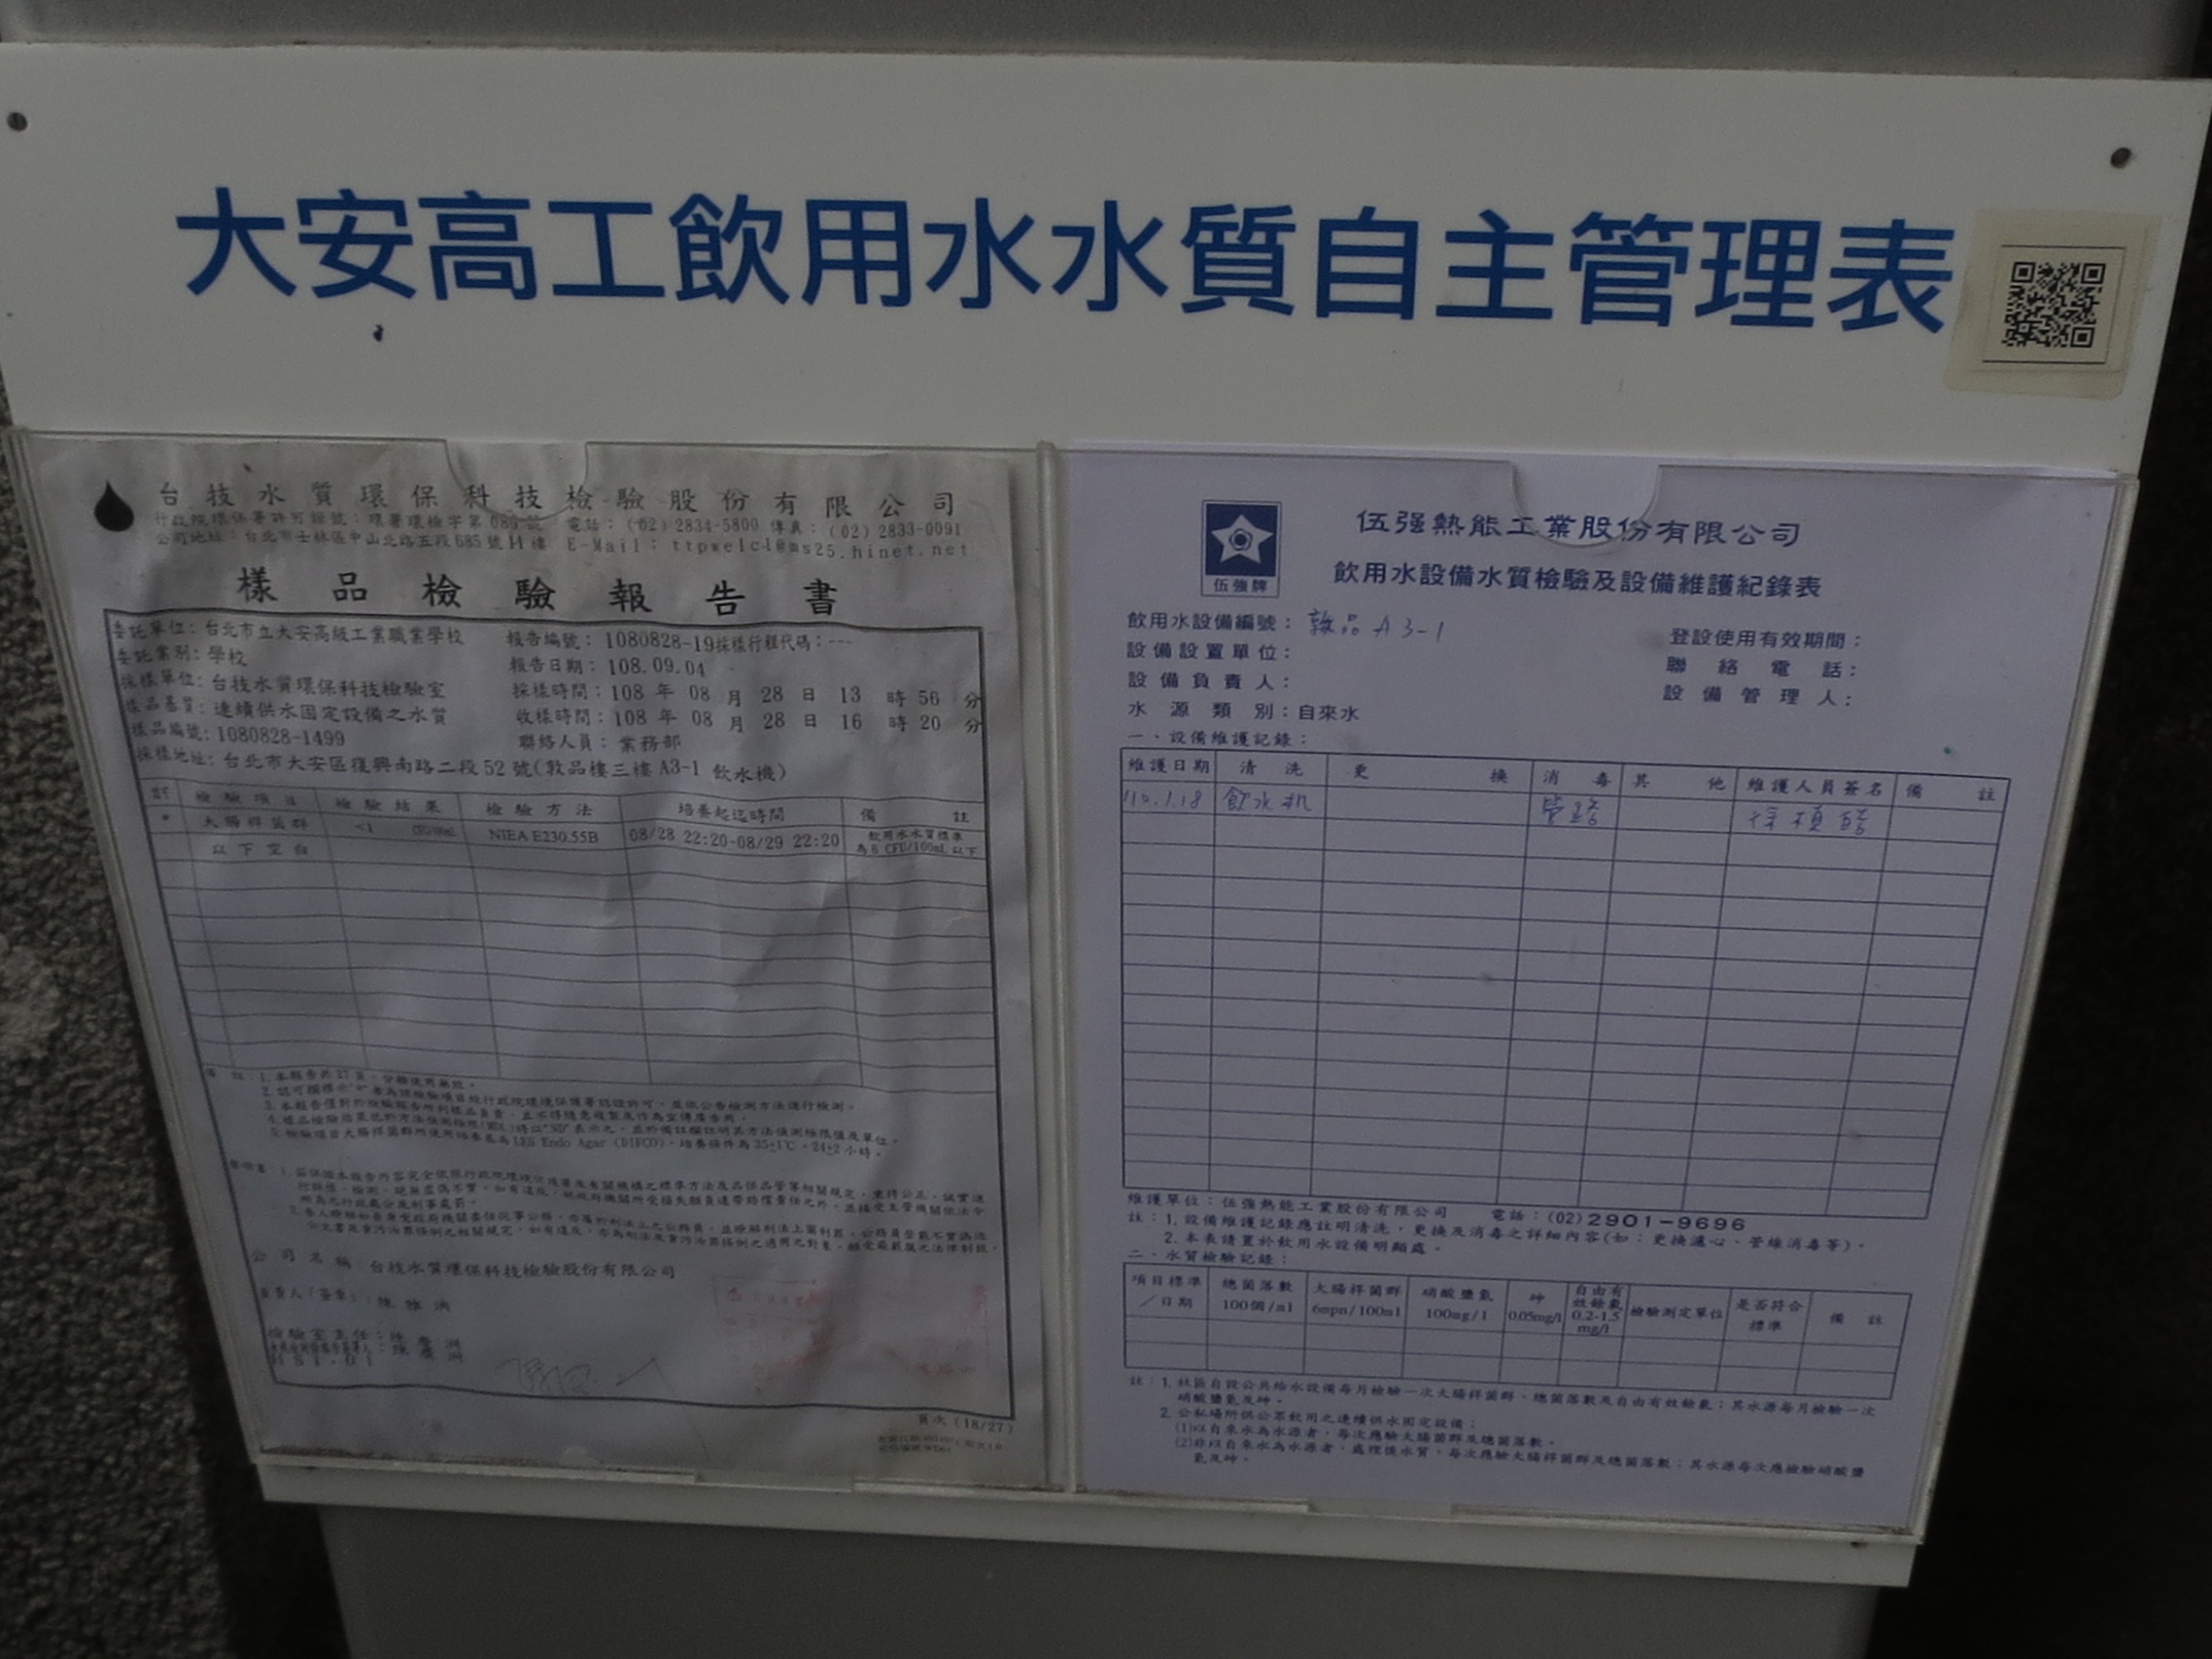 大安高工飲用水水質自主管理表
台技水質環保科技檢驗股份有限公司
行政院環保署許可證號：環署環檢字第 089 號 電話：(02) 2834-5800 傳真：(02) 2833-0091
公司地址：台北市士林區中山北路五段 685 號 H 樓 E-Mail：ttpwelcl@ms25.hinet.net
樣品檢驗報告書
委託單位：台北市立大安高級工業職業學校 報告編號：1080828-19採樣行程代碼：---
委託業別：學校 報告日期：108.09.04
採樣單位：台技水質環保科技檢驗室 採樣時間：108 年 08 月 28 日 13 時 56 分
樣品基質：連續供水固定設備之水質 收樣時間：108 年 08 月 28 日 16 時 20 分
樣品編號：1080828-1499 聯絡人員：業務部
採樣地址：台北市大安區復興南路二段 52 號(敦品樓三樓 A3-1 飲水機)
註 檢驗項目 檢驗結果 檢驗方法 培養起迄時間 備註
* 大腸桿菌群 <1 CFU/100mL NIEA E230.55B 08/28 22:20~08/29 22:20 飲用水水質標準
為6 CFU/100mL 以下
以下空白
備 註：1.本報告共 27 頁，分離使用無效。
2.認可欄標示"*"者為該檢驗項目經行政院環境保護署認證許可，並依公告檢測方法進行檢測。
3.本報告僅對於檢驗報告所列樣品負責，並不得隨意複製及作為宣傳廣告用。
4.樣品檢驗結果低於方法偵測極限(MDL)時以"ND"表示之，並於備註欄註明其方法偵測極限值及單位。
5.檢驗項目大腸桿菌群所使用培養基為 LES Endo Agar (DIFCO)，培養條件為 35±1℃，24±2 小時。
公 司 名 稱：台技水質環保科技檢驗股份有限公司
負責人(簽章)：陳
檢驗室主任：陳 慶
頁次 (18/27)
伍強牌
伍强熱能工業股份有限公司
飲用水設備水質檢驗及設備維護紀錄表
飲用水設備編號：敦品 A3-1 登設使用有效期間：
設備設置單位： 聯絡電話：
設備負責人： 設備管理人：
水源類別：自來水
一、設備維護記錄：
維護日期 清洗 更換 消毒 其他 維護人員簽名 備註
110.1.18 飲水机 管路
維護單位：伍強熱能工業股份有限公司 電話：(02)2901-9696
註：1. 設備維護記錄應註明清洗，更換及消毒之詳細內容(如：更換濾心、管線消毒等)。
2. 本表請置於飲用水設備明顯處。
二、水質檢驗記錄：
項目標準／日期 總菌落數 100個/ml 大腸桿菌群 6mpn/100ml 硝酸鹽氮 100mg/l 砷 0.05mg/l 自由有效餘氯 0.2-1.5 mg/l 檢驗測定單位 是否符合標準 備註
註：1. 社區自設公共給水設備每月檢驗一次大腸桿菌群，總菌落數及自由有效餘氯；其水源每月檢驗一次
硝酸鹽氮及砷。
2. 公私場所供公眾飲用之連續供水固定設備：
(1)以自來水為水源者，每次應驗大腸菌群及總菌落數。
(2)非以自來水為水源者，處理後水質，每次應驗大腸桿菌群及總菌落數；其水源每次應檢驗硝酸鹽
氮及砷。